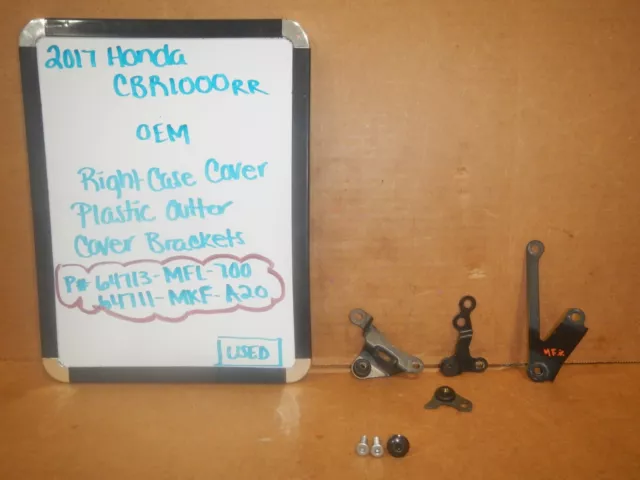 2017 Honda
CBR1000RR
OEM
Right Case Cover
Plastic Outter
Cover Brackets
P# 64713-MFL-700
64711-MKF-A20
USED